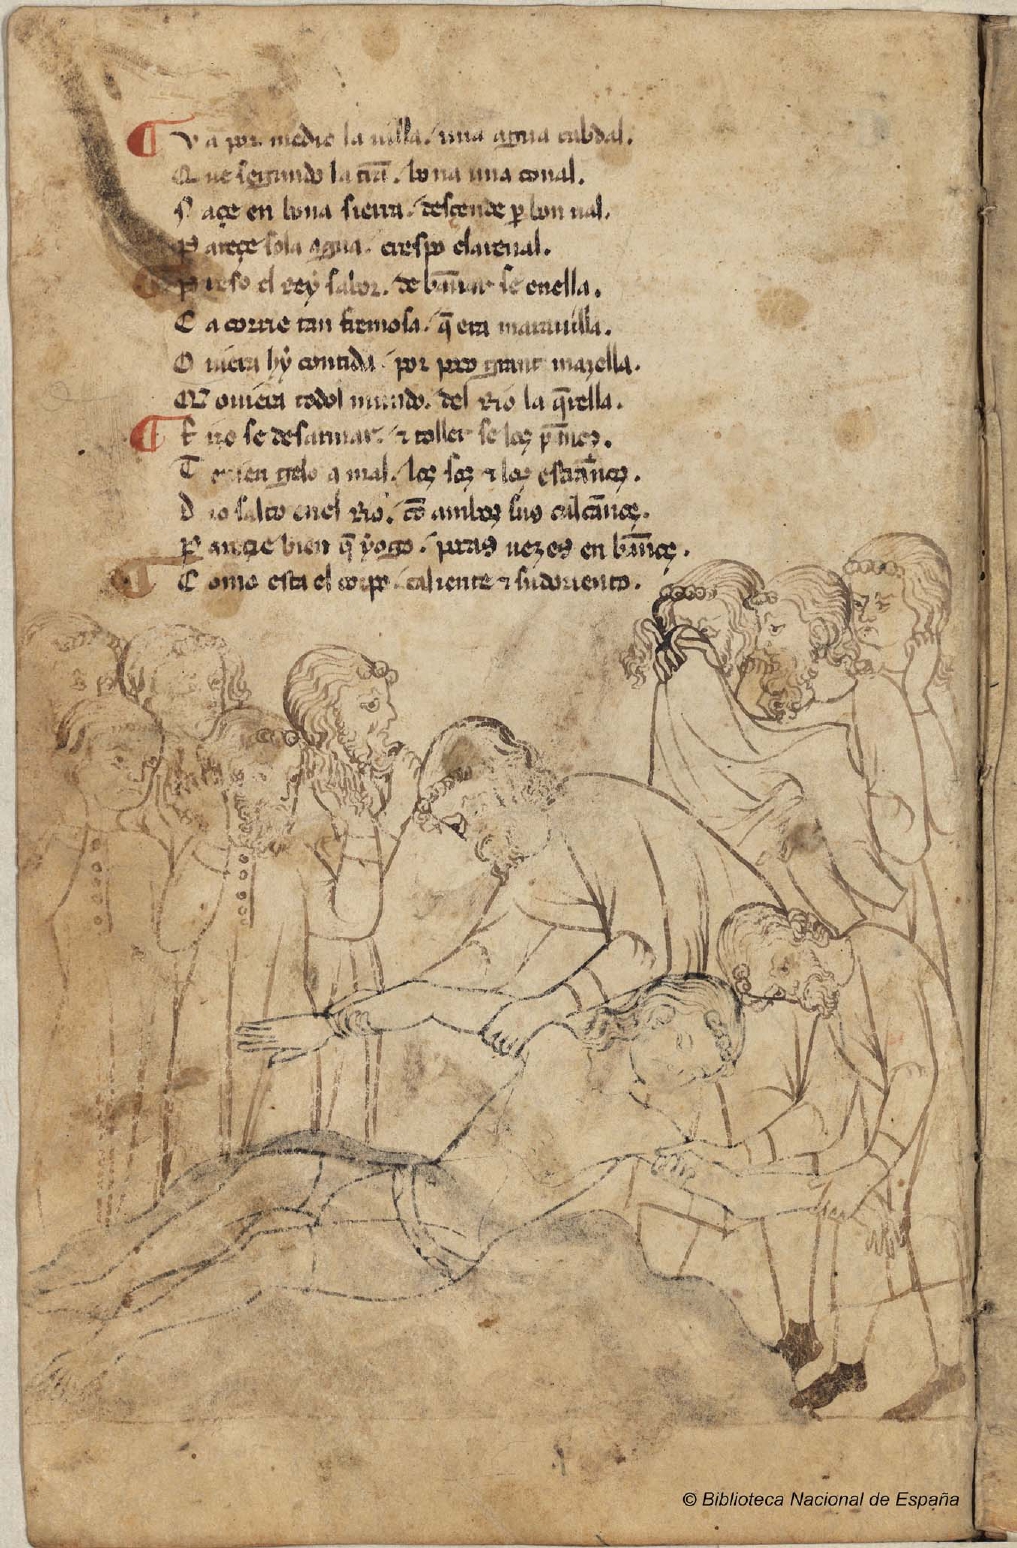 ¶ Va por medio la uilla. una agua cabdal.
Que segundo la tr̃a. bona una conal.
Naçe en bona sierra. desçende ꝑ bon ual.
Pareçe sola agua. crespo elarenal.
¶ Preso el rey sabor. de bãnar se enella.
Ca corrie tan fermosa. q̃ era marauilla.
Ouiera hy contida. por poco grant manzella.
Mouiera todol mundo. del Rio la q̃rella.
¶ Euo se desarmar. ⁊ toller se los pãnos.
Touien gelo a mal. los sos ⁊ los estrãnos.
Dio salto enel Rio. cõ ambos sus calcãnos.
Pareçie bien q̃ yogo. pocas uezes en bãnos.
¶ Como esta el corpo. caliente ⁊ sudoriento.
© Biblioteca Nacional de España